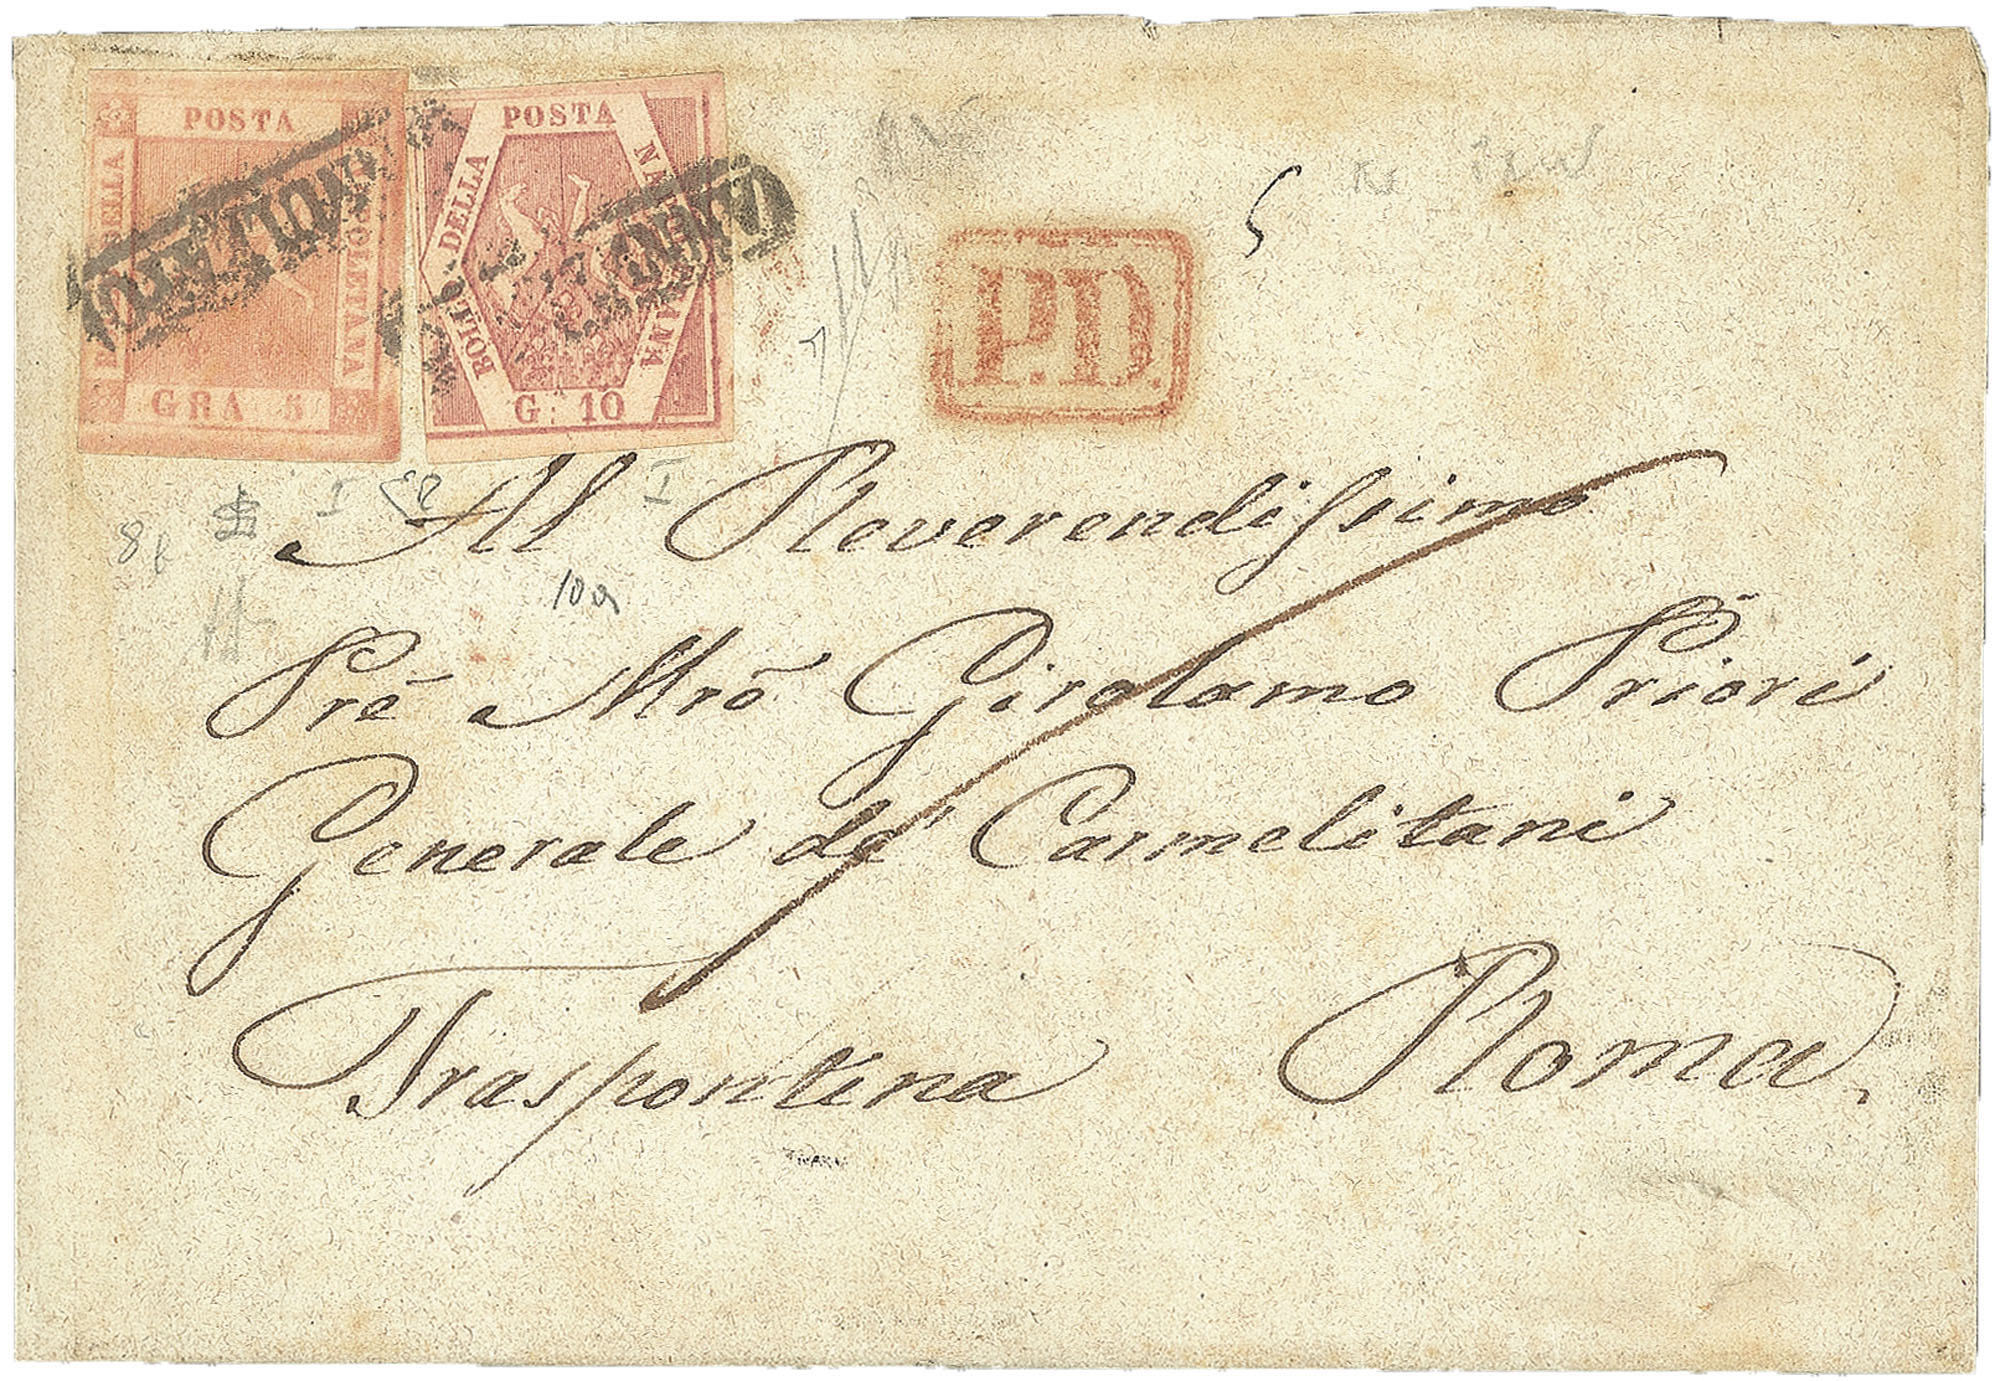 POSTA
BOLLO DELLA
NAPOLETANA
GRA 5
ANNULLATO
POSTA
BOLLO DELLA
G: 10
P.D.
5
I
I
10a
Al Reverendissimo
Prē Mrō Girolamo Priori
Generale de' Carmelitani
Traspontina Roma